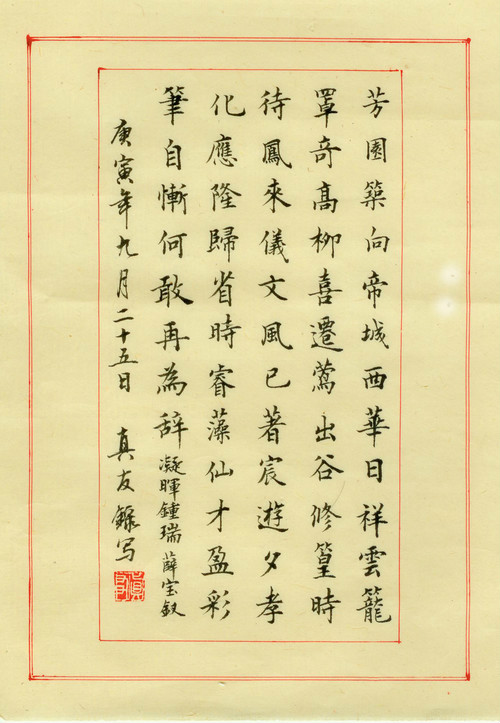 芳園築向帝城西華日祥雲籠
罩奇髙柳喜遷鶯出谷修篁時
待鳳來儀文風已著宸遊夕孝
化應隆歸省時睿藻仙才盈彩
筆自慚何敢再為辭 凝暉鍾瑞 薛宝釵
庚寅年九月二十五日 真友錄写
眞友